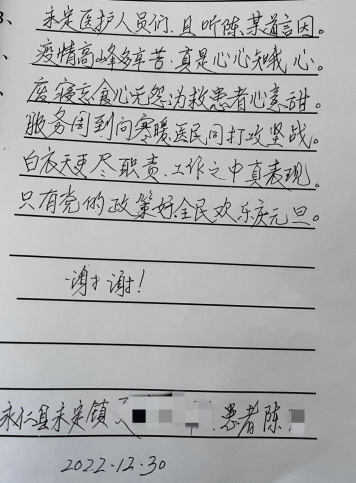 永定医护人员们,且听陈某道言因。
疫情高峰多辛苦,真是心心知我心。
废寝忘食心无怨,为救患者心意甜。
服务周到问寒暖,医民同打攻坚战。
白衣天使尽职责,工作之中真表现。
只有党的政策好,全民欢乐庆元旦。
谢谢!
永仁县永定镇 患者陈
2022.12.30